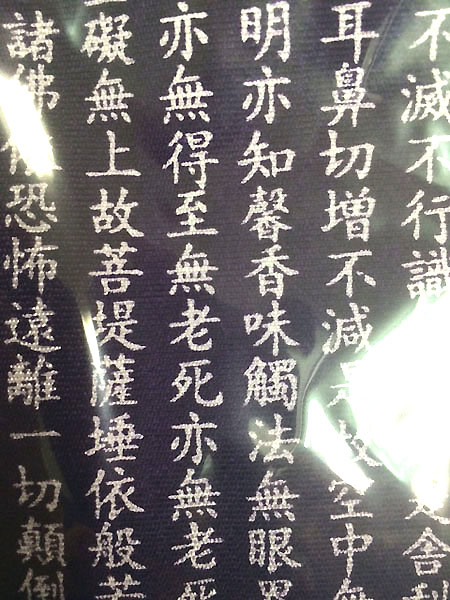 不滅不行識舍利
耳鼻切增不減是故空中無
明亦知馨香味觸法無眼界
亦無得至無老死亦無老死
礙無上故菩堤薩埵依般若
諸佛恐怖遠離一切顛倒